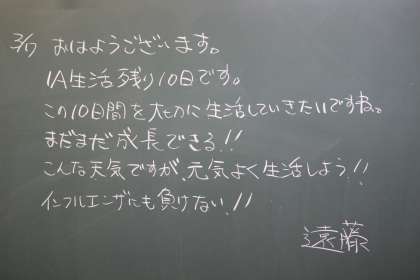 3/7 おはようございます。
1A生活残り10日です。
この10日間を大切に生活していきたいですね。
まだまだ成長できる!!
こんな天気ですが、元気よく生活しよう!!
インフルエンザにも負けない!!
遠藤